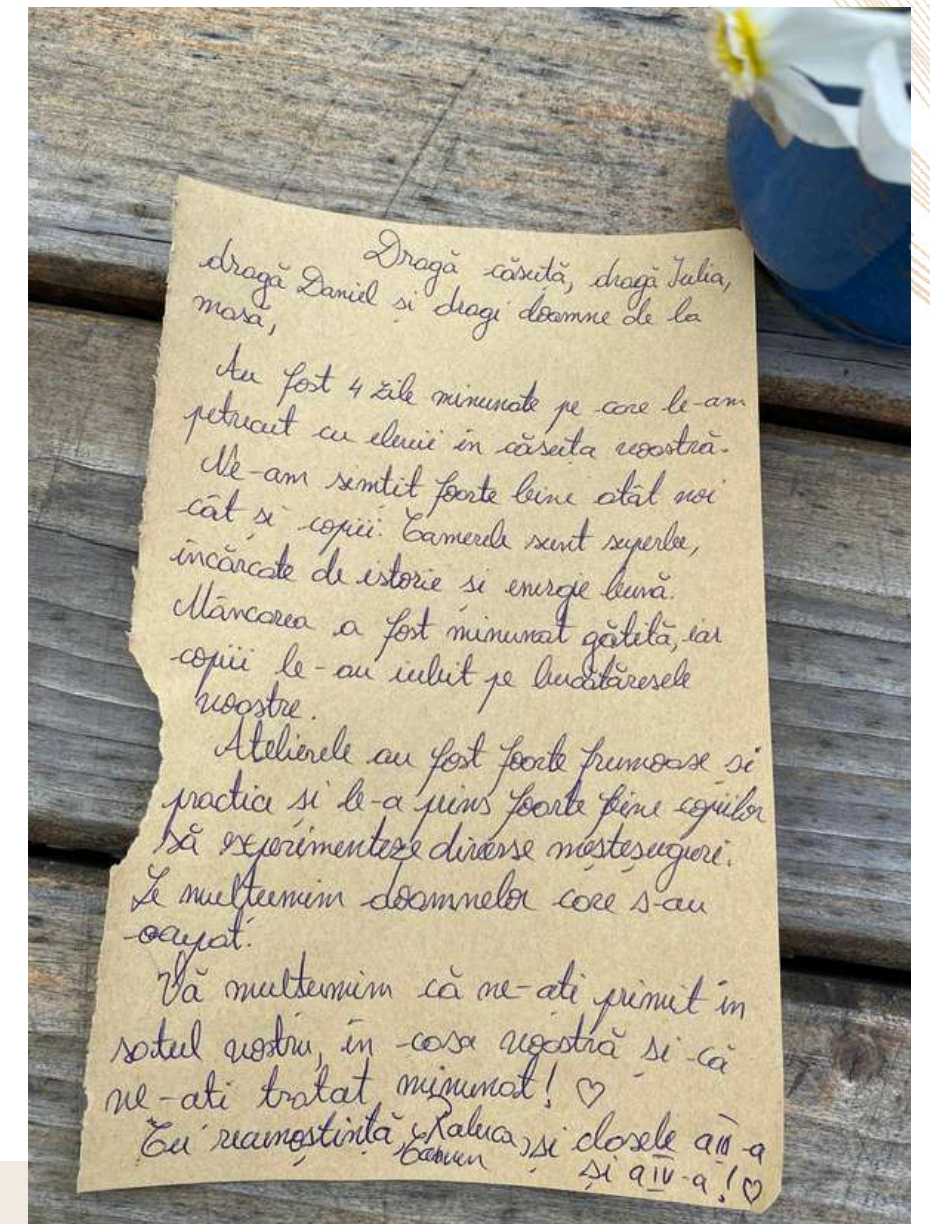 Dragă căsuță, dragă Iulia,
dragă Daniel și dragi doamne de la
masă,
Au fost 4 zile minunate pe care le-am
petrecut cu elevii în căsuța voastră.
Ne-am simțit foarte bine atât noi
cât și copiii. Camerele sunt superbe,
încărcate de istorie și energie bună.
Mâncarea a fost minunat gătită, iar
copiii le-au iubit pe bucătăresele
voastre.
Atelierele au fost foarte frumoase și
practice și le-a prins foarte bine copiilor
să experimenteze diverse meșteșuguri.
Le mulțumim doamnelor care s-au
ocupat.
Vă mulțumim că ne-ați primit în
satul vostru, în casa voastră și că
ne-ați tratat minunat! ♡
Cu recunoștință, Raluca, și clasele a III-a
Carmen și a IV-a! ♡